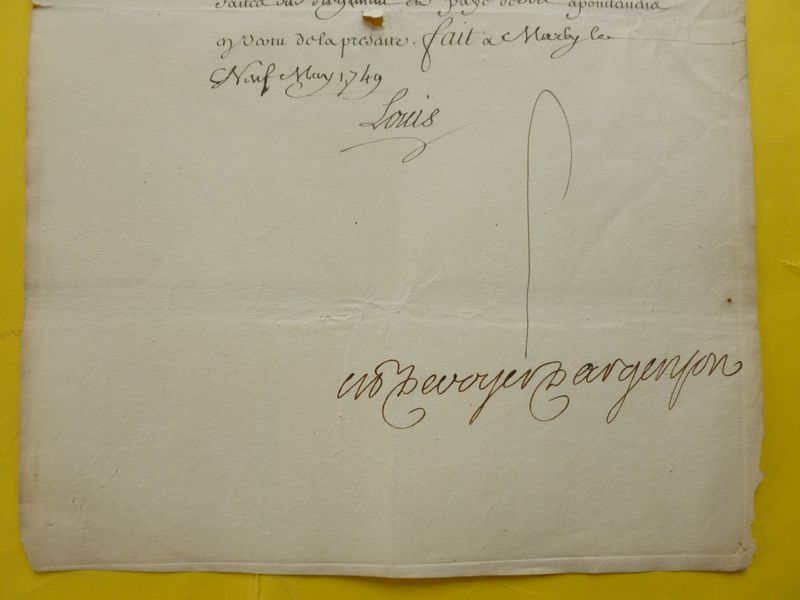 et payé de ses
En Vertu de la presente. fait a Marly le
Neuf May 1749
Louis
Devoyer Dargenson